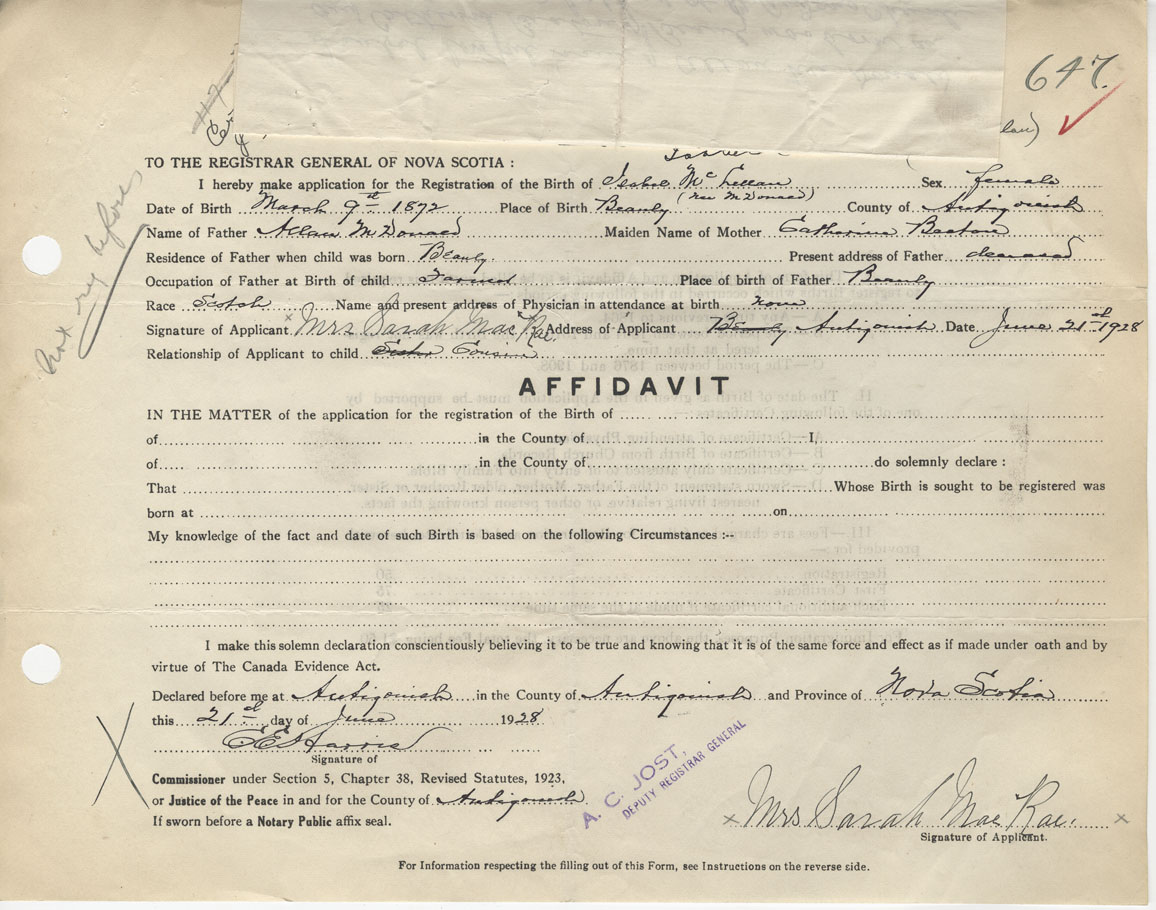 647.
lan)
TO THE REGISTRAR GENERAL OF NOVA SCOTIA :
I hereby make application for the Registration of the Birth of Isabel McLellan Sex female
(nee McDonald)
Date of Birth March 9th 1872 Place of Birth Beauly County of Antigonish
Name of Father Allan McDonald Maiden Name of Mother Catherine Beaton
Residence of Father when child was born Beauly. Present address of Father deceased
Occupation of Father at Birth of child Farmer Place of birth of Father Beauly
Race Scotch Name and present address of Physician in attendance at birth none
Signature of Applicant x Mrs Sarah MacRae. Address of Applicant Beauly Antigonish Date June 21st 1928
Relationship of Applicant to child Sister Cousin
not reg before
AFFIDAVIT
IN THE MATTER of the application for the registration of the Birth of
of in the County of I,
of in the County of do solemnly declare :
That Whose Birth is sought to be registered was
born at on
My knowledge of the fact and date of such Birth is based on the following Circumstances :--
I make this solemn declaration conscientiously believing it to be true and knowing that it is of the same force and effect as if made under oath and by
virtue of The Canada Evidence Act.
Declared before me at Antigonish in the County of Antigonish and Province of Nova Scotia
this 21st day of June 1928
C E Harris
Signature of
Commissioner under Section 5, Chapter 38, Revised Statutes, 1923,
or Justice of the Peace in and for the County of Antigonish.
If sworn before a Notary Public affix seal.
A. C. JOST,
DEPUTY REGISTRAR GENERAL
x Mrs Sarah MacRae. x
Signature of Applicant.
For Information respecting the filling out of this Form, see Instructions on the reverse side.